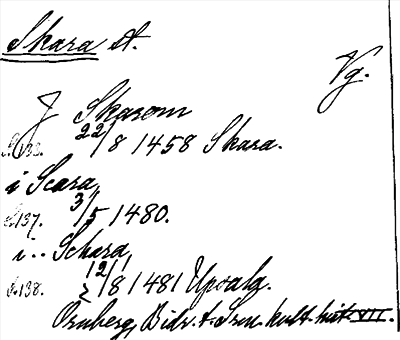 Skara st.
Vg.
J Skarom
S. 138. 22/8 1458 Skara.
i Scara,
S. 137. 3/5 1480.
i .. Schara,
S. 138. 12/8 1481 Upsala.
Örnberg, Bidr. t. Sven. kult. hist. VII.